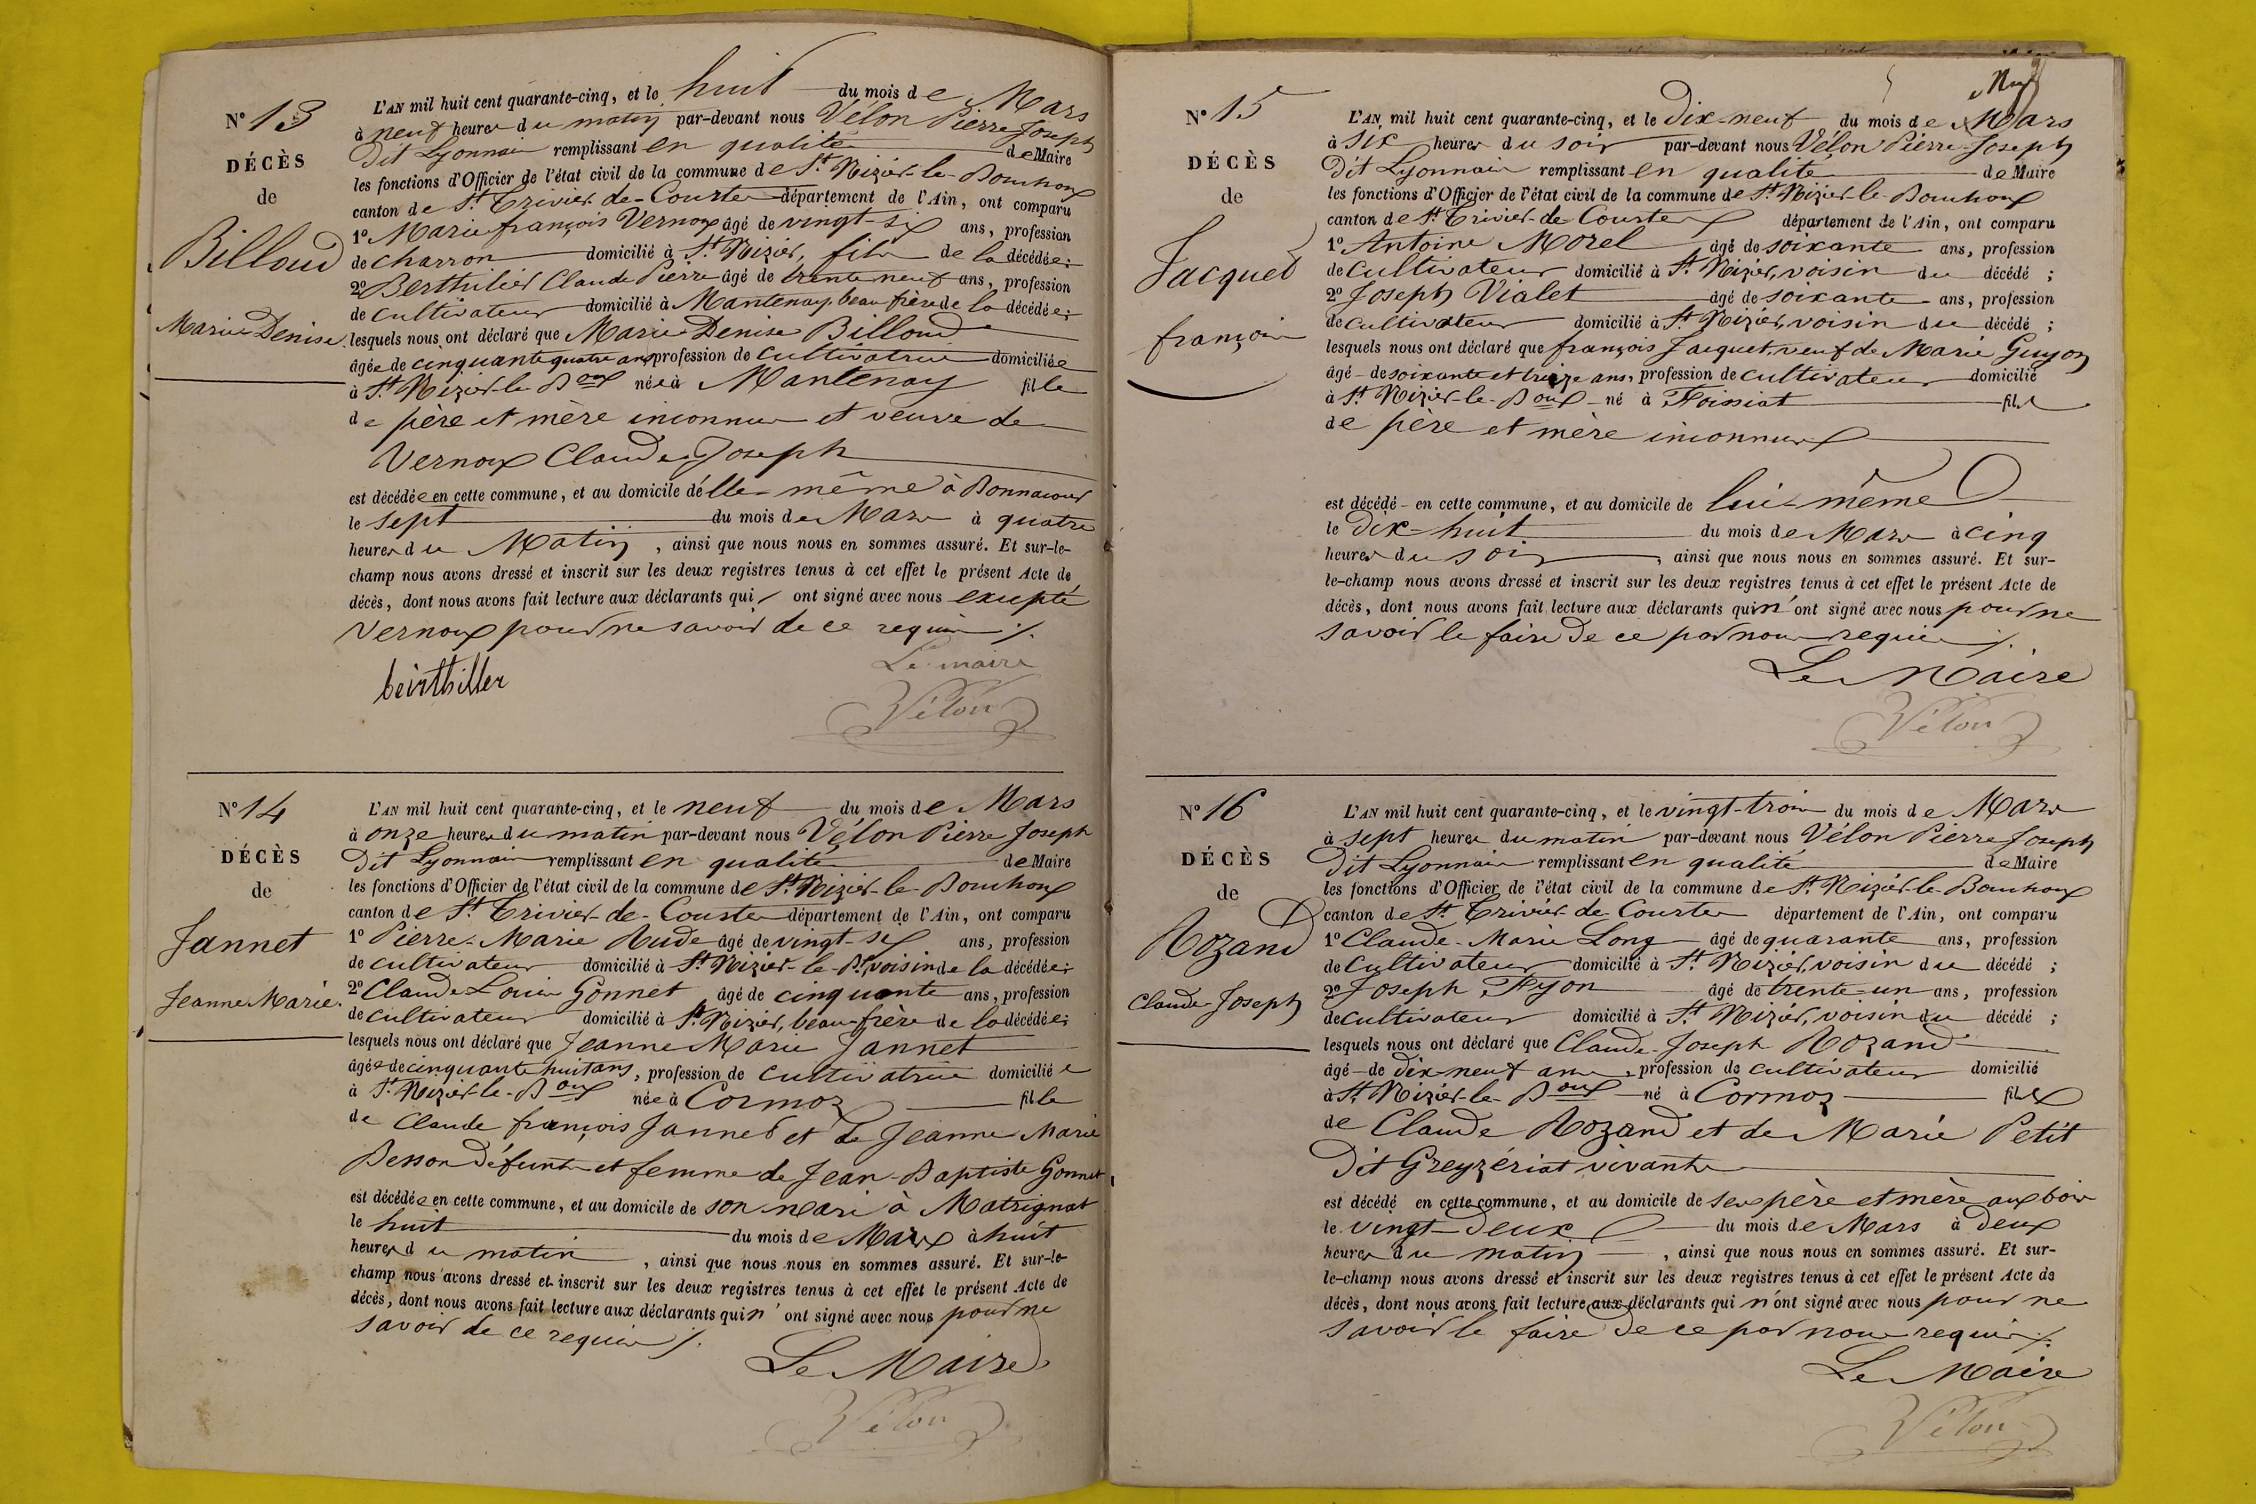 N° 13
DÉCÈS
de
Billoud
Marie Denise.
L'AN mil huit cent quarante-cinq, et le huit du mois de Mars
à neuf heures du matin par-devant nous Vélon Pierre Joseph
Dit Lyonnais remplissant en qualité de Maire
les fonctions d'Officier de l'état civil de la commune de St. Nizier-le-Bouchoux
canton de St. Trivier-de-Courtes département de l'Ain, ont comparu
1° Marie françois Vernoux âgé de vingt-six ans, profession
de charron domicilié à St. Nizier, fils de la décédée;
2° Berthilier Claude Pierre âgé de trente neuf ans, profession
de cultivateur domicilié à Mantenay, beau frère de la décédée;
lesquels nous ont déclaré que Marie Denise Billoud
âgée de cinquante quatre ans, profession de cultivatrice domiciliée
à St. Nizier-le-Boux née à Mantenay fille
de père et mère inconnus et veuve de
Vernoux Claude Joseph
est décédée en cette commune, et au domicile d'elle-même à Bonnacour
le sept du mois de Mars à quatre
heures du Matin, ainsi que nous nous en sommes assuré. Et sur-le-
champ nous avons dressé et inscrit sur les deux registres tenus à cet effet le présent Acte de
décès, dont nous avons fait lecture aux déclarants qui ont signé avec nous excepté
Vernoux pour ne savoir de ce requis ./.
Le maire
berthiller
Vélon
N° 14
DÉCÈS
de
Jannet
Jeanne Marie.
L'AN mil huit cent quarante-cinq, et le neuf du mois de Mars
à onze heures du matin par-devant nous Vélon Pierre Joseph
Dit Lyonnais remplissant en qualité de Maire
les fonctions d'Officier de l'état civil de la commune de St. Nizier-le-Bouchoux
canton de St. Trivier-de-Courtes département de l'Ain, ont comparu
1° Pierre-Marie Rude âgé de vingt-six ans, profession
de cultivateur domicilié à St. Nizier-le-Bx, voisin de la décédée;
2° Claude Louis Gonnet âgé de cinquante ans, profession
de cultivateur domicilié à St. Nizier, beau-frère de la décédée;
lesquels nous ont déclaré que Jeanne Marie Jannet
âgée de cinquante huit ans, profession de cultivatrice domiciliée
à St. Nizier-le-Boux née à Cormoz fille
de Claude françois Jannet et de Jeanne Marie
Besson défunts et femme de Jean-Baptiste Gonnet
est décédée en cette commune, et au domicile de son mari à Matrignat
le huit du mois de Mars à huit
heures du matin, ainsi que nous nous en sommes assuré. Et sur-le-
champ nous avons dressé et inscrit sur les deux registres tenus à cet effet le présent Acte de
décès, dont nous avons fait lecture aux déclarants qui n'ont signé avec nous pour ne
savoir de ce requis ./.
Le Maire
Vélon
N° 15
DÉCÈS
de
Jacquet
françois
L'AN mil huit cent quarante-cinq, et le Dix-neuf du mois de Mars
à six heures du soir par-devant nous Vélon Pierre-Joseph
Dit Lyonnais remplissant en qualité de Maire
les fonctions d'Officier de l'état civil de la commune de St. Nizier-le-Bouchoux
canton de St. Trivier-de-Courtes département de l'Ain, ont comparu
1° Antoine Morel âgé de soixante ans, profession
de cultivateur domicilié à St. Nizier, voisin du décédé;
2° Joseph Vialet âgé de soixante ans, profession
de cultivateur domicilié à St. Nizier, voisin du décédé;
lesquels nous ont déclaré que françois Jacquet, veuf de Marie Guyon
âgé de soixante et treize ans, profession de cultivateur domicilié
à St. Nizier-le-Boux né à Foissiat fils
de père et mère inconnus
est décédé en cette commune, et au domicile de lui-même
le Dix-huit du mois de Mars à cinq
heures du soir, ainsi que nous nous en sommes assuré. Et sur-
le-champ nous avons dressé et inscrit sur les deux registres tenus à cet effet le présent Acte de
décès, dont nous avons fait lecture aux déclarants qui n'ont signé avec nous pour ne
savoir le faire de ce par nous requis ./.
Le Maire
Vélon
N° 16
DÉCÈS
de
Rozand
Claude Joseph
L'AN mil huit cent quarante-cinq, et le vingt-trois du mois de Mars
à sept heures du matin par-devant nous Vélon Pierre Joseph
Dit Lyonnais remplissant en qualité de Maire
les fonctions d'Officier de l'état civil de la commune de St. Nizier-le-Bouchoux
canton de St. Trivier-de-Courtes département de l'Ain, ont comparu
1° Claude-Marie Long âgé de quarante ans, profession
de cultivateur domicilié à St. Nizier, voisin du décédé;
2° Joseph Fyon âgé de trente-un ans, profession
de cultivateur domicilié à St. Nizier, voisin du décédé;
lesquels nous ont déclaré que Claude-Joseph Rozand
âgé de dix-neuf ans, profession de cultivateur domicilié
à St. Nizier-le-Boux né à Cormoz fils
de Claude Rozand et de Marie Petit
Dit Greyzériat vivants
est décédé en cette commune, et au domicile de ses père et mère aux bois
le vingt-deux du mois de Mars à deux
heures du matin, ainsi que nous nous en sommes assuré. Et sur-
le-champ nous avons dressé et inscrit sur les deux registres tenus à cet effet le présent Acte de
décès, dont nous avons fait lecture aux déclarants qui n'ont signé avec nous pour ne
savoir le faire de ce par nous requis ./.
Le Maire
Vélon